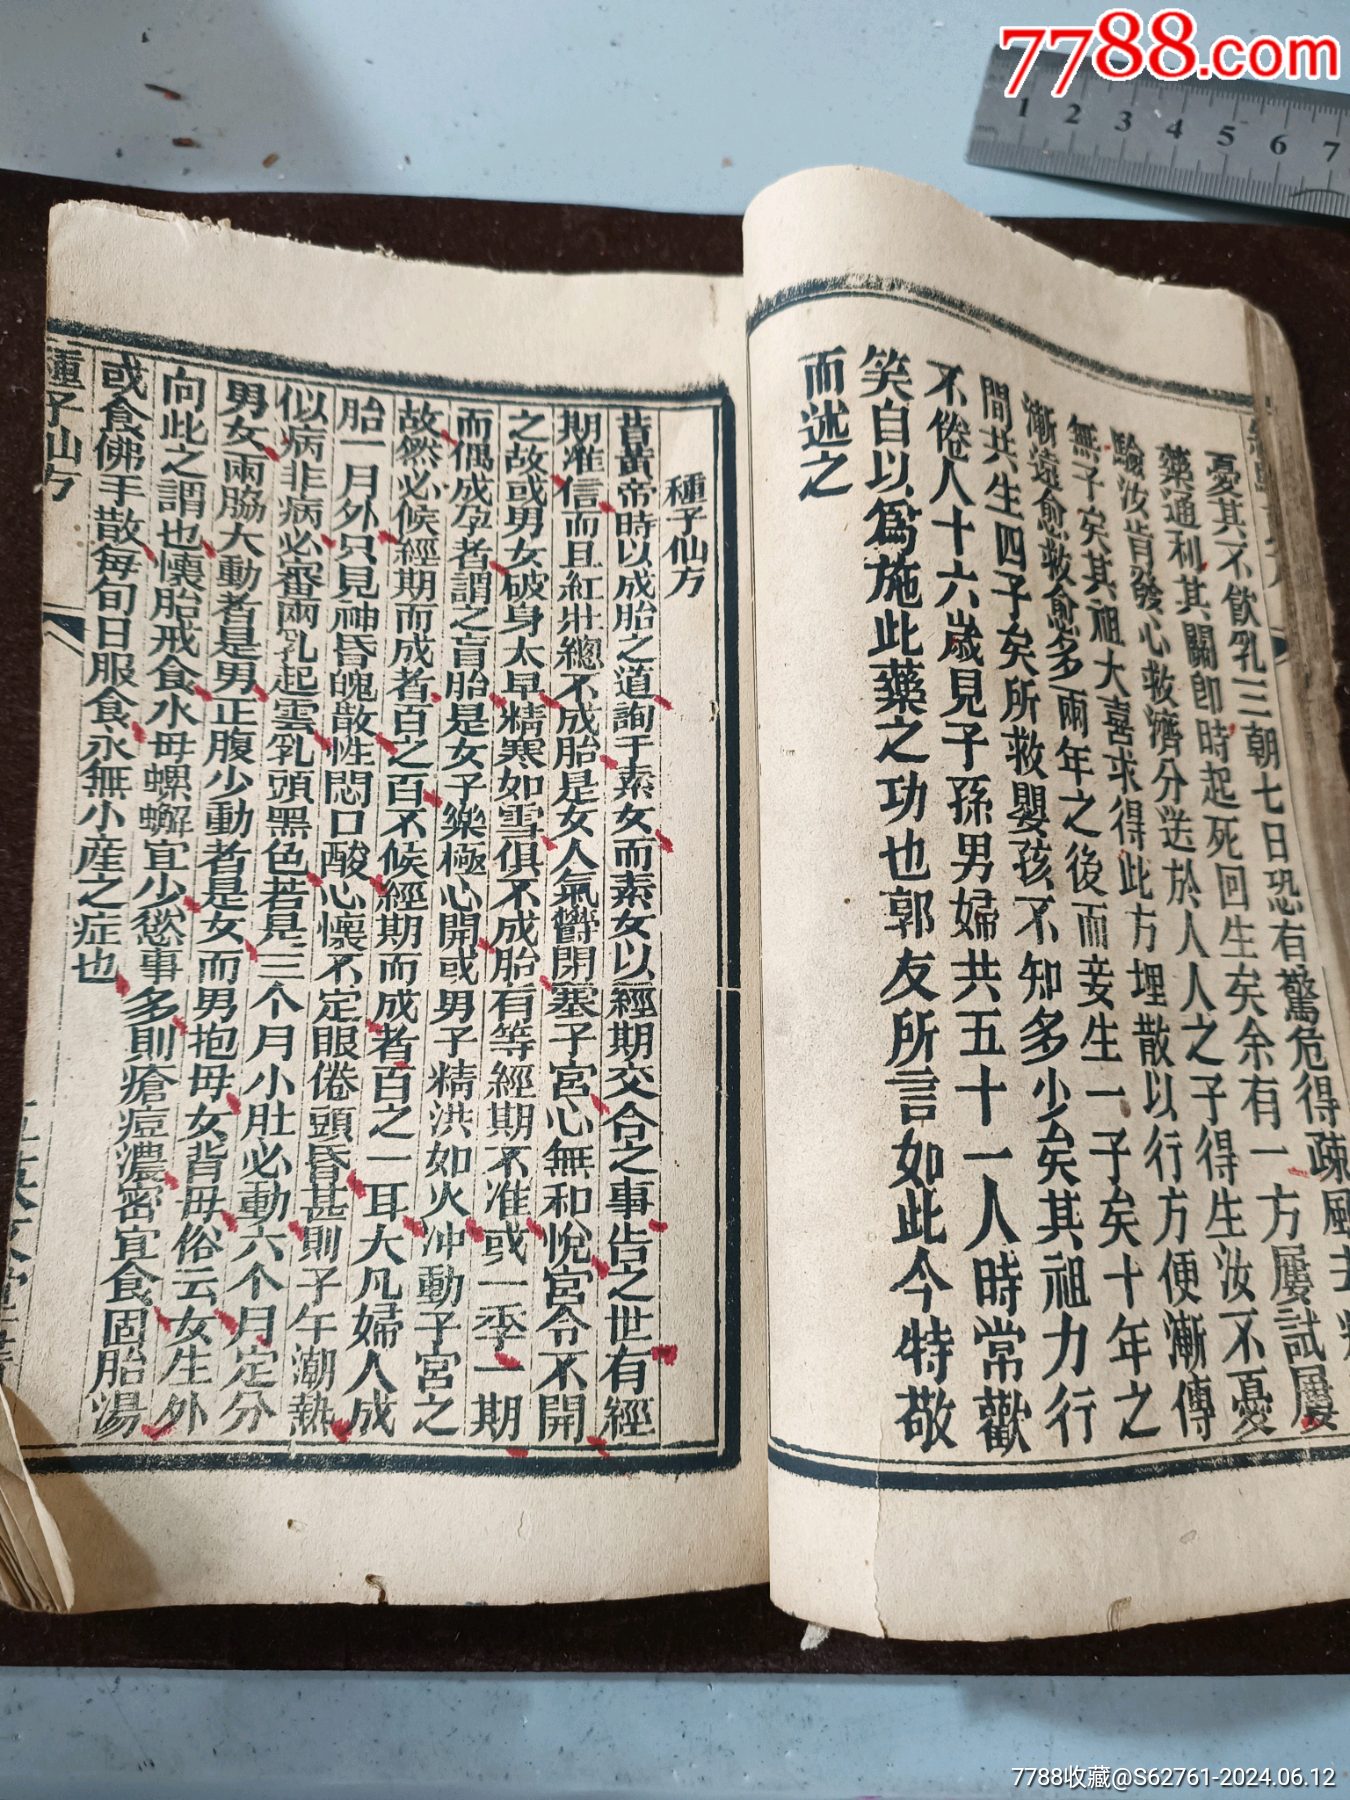 7788.com
1 2 3 4 5 6 7
憂其不飲乳三朝七日恐有驚危得疎風
藥通利其關卽時起死回生矣余有一方屢試屢
驗汝肯發心救濟分送於人人之子得生汝不憂
無子矣其祖大喜求得此方埋散以行方便漸傳
漸遠愈救愈多兩年之後而妾生一子矣十年之
間共生四子矣所救嬰孩不知多少矣其祖力行
不倦人十六歲見子孫男婦共五十一人時常歡
笑自以爲施此藥之功也郭友所言如此今特敬
而述之
種子仙方
昔黃帝時以成胎之道詢于素女而素女以經期交合之事告之世有經
期准信而且紅壯總不成胎是女人氣鬱閉塞子宮心無和悅宮令不開
之故或男女破身太早精寒如雪俱不成胎有等經期不准或一季一期
而偶成孕者謂之盲胎是女子樂極心開或男子精洪如火冲動子宮之
故然必候經期而成者百之百不候經期而成者百之一耳大凡婦人成
胎一月外只見神昏魄散性悶口酸心懷不定眼倦頭昏甚則子午潮熱
似病非病必審兩乳起雲乳頭黑色若是三个月小肚必動六个月定分
男女兩脇大動者是男正腹少動者是女而男抱母女背母俗云女生外
向此之謂也懷胎戒食水母螺蠏宜少慾事多則瘡痘濃密宜食固胎湯
或食佛手散每旬日服食永無小產之症也
種子仙方
7788收藏@S62761-2024.06.12